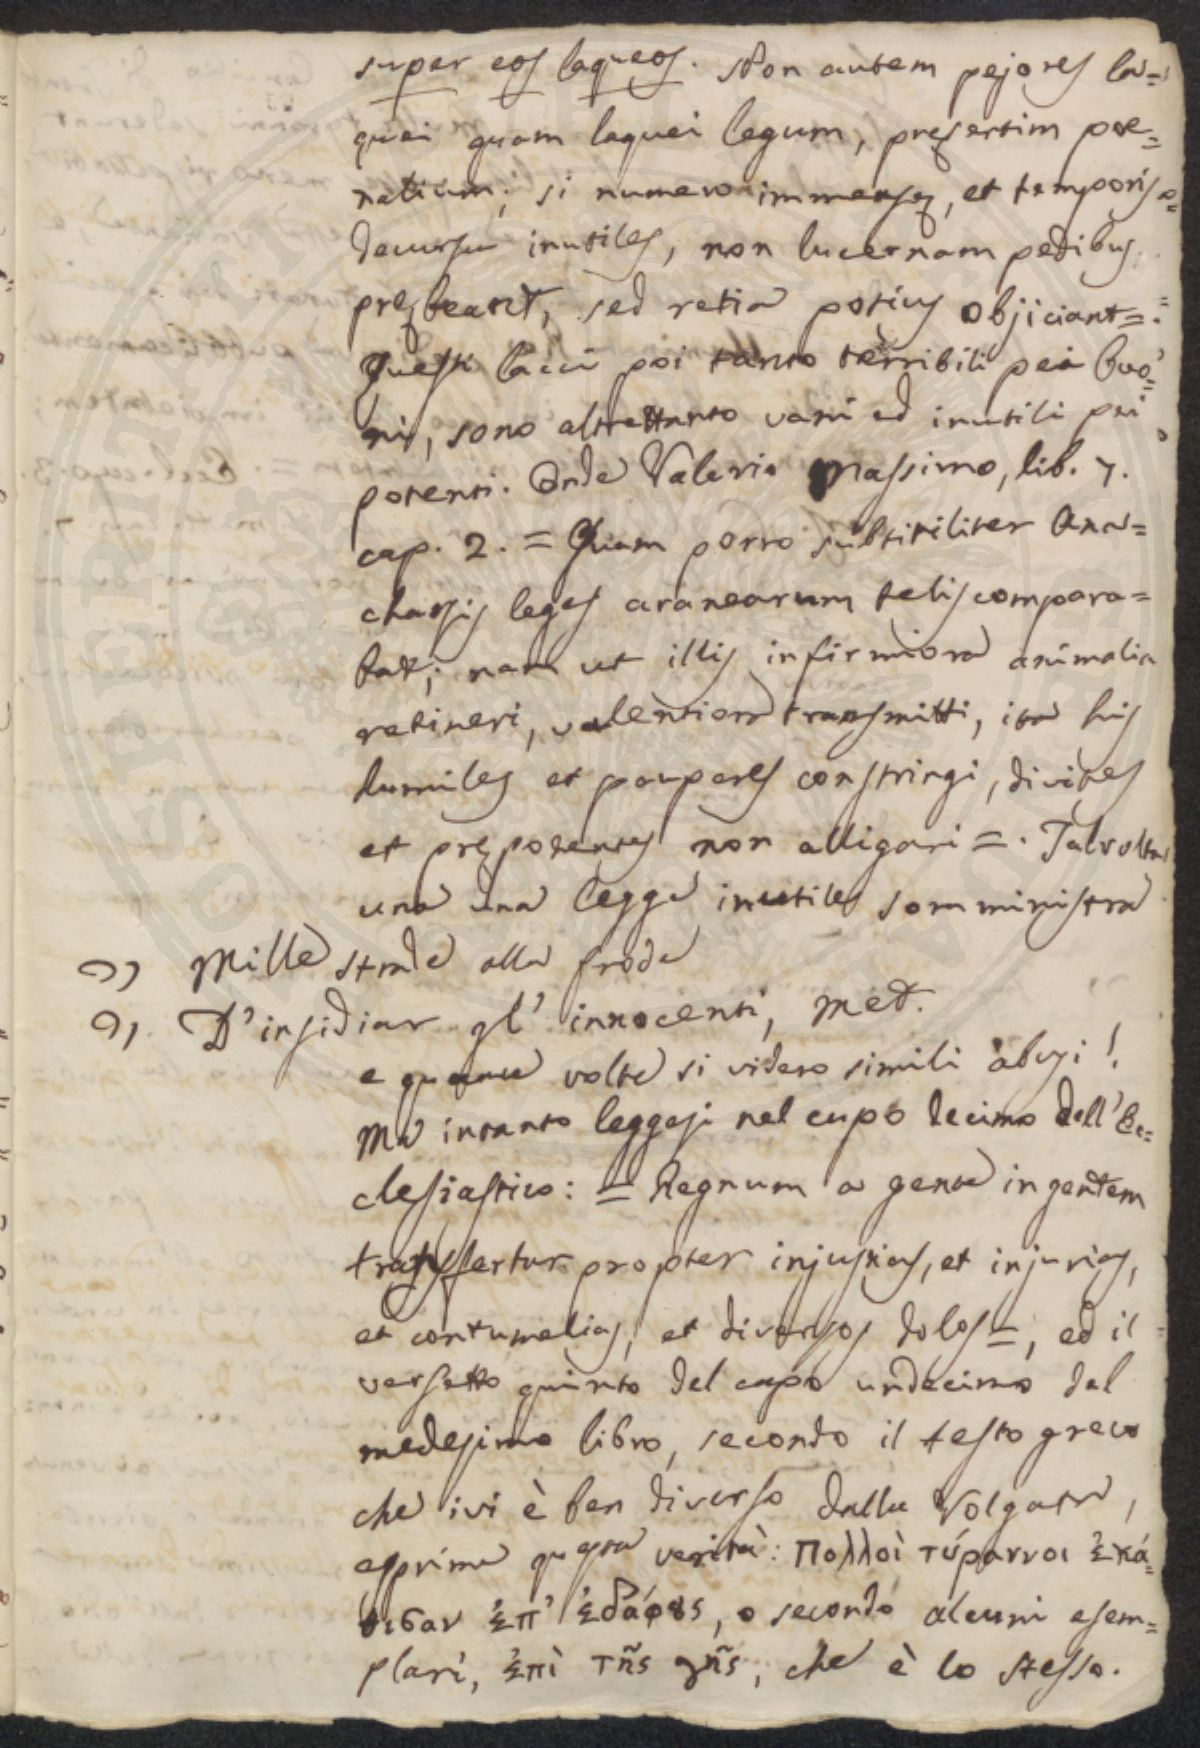 super eos laqueos. Non autem pejores la=
quei quam laquei legum, presertim poe=
nalium; si numero immensę, et temporis
decursu inutiles, non lucernam pedibus
prębeant, sed retia potius objiciant=:
Questi lacci poi tanto terribili pei buo=
ni, sono altrettanto vani ed inutili pei
potenti. Onde Valerio Massimo, lib. 7.
cap. 2. = Quam porro subtiliter Ana=
charsis leges aranearum telis compara=
bat; nam ut illis infirmiora animalia
retineri, valentiora transmitti, ita his
humiles et pauperes constringi, divites
et prępotentes non alligari =. Talvolta
una una legge inutile somministra
" Mille strade alla frode
" D'insidiar gl' innocenti, Met.
e quante volte si videro simili abusi!
Ma intanto leggesi nel capo decimo dell' Ec=
clesiastico: = Regnum a gente in gentem
transfertur propter injustias, et injurias,
et contumelias, et diversos dolos =, ed il
versetto quinto del capo undecimo del
medesimo libro, secondo il testo greco
che ivi è ben diverso dalla Volgata,
esprime questa verità: Πολλοὶ τύραννοι ἐκά=
θισαν ἐπ' ἐδάφȣς, o secondo alcuni esem=
plari, ἐπὶ τῆς γῆς, che è lo stesso.
SPIRITI